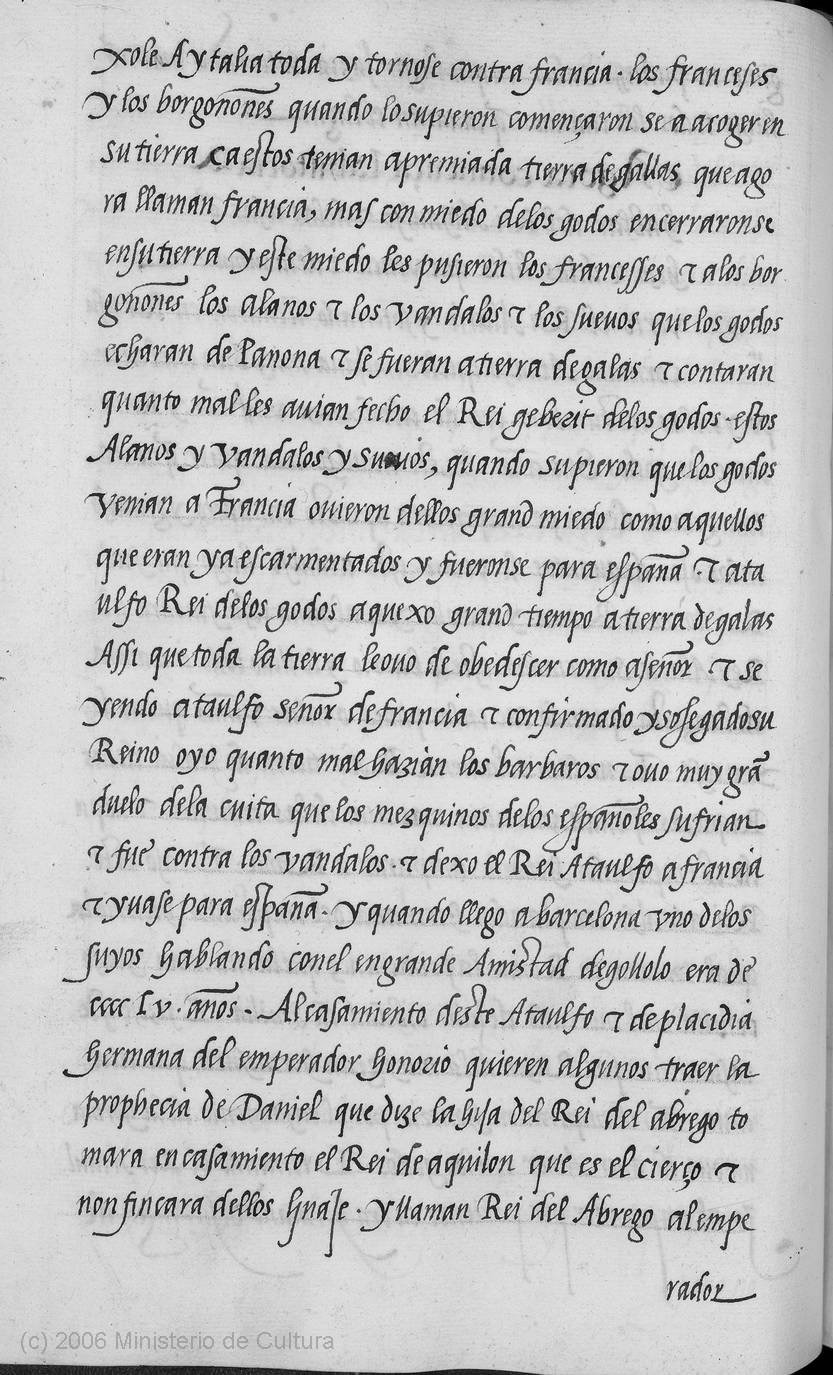 xole Aytalia toda y tornose contra francia · los franceses
y los borgoñones quando lo supieron començaron se a acoger en
su tierra ca estos tenian apremiada tierra de gallas que ago
ra llaman francia, mas con miedo de los godos encerraronse
en su tierra y este miedo les pusieron los francesses τ a los bor
goñones los alanos τ los vandalos τ los suevos que los godos
echaran de Panona τ se fueran a tierra de galas τ contaran
quanto mal les avian fecho el Rei geberit de los godos · estos
Alanos y vandalos y suevos, quando supieron que los godos
venian a Francia ovieron dellos grand miedo como aquellos
que eran ya escarmentados y fueronse para españa · τ ata
ulfo Rei de los godos aquexo grand tiempo a tierra de galas
Assi que toda la tierra le ovo de obedescer como a señor τ se
yendo ataulfo señor de francia τ confirmado y sosegado su
Reino oyo quanto mal hazian los barbaros τ ovo muy grã
duelo de la cuita que los mezquinos de los españoles sufrian
τ fue contra los vandalos · τ dexo el Rei Ataulfo a francia
τ yvase para españa · y quando llego a barcelona vno de los
suyos hablando con el en grande Amistad degollolo era de
cccc lv · años · Al casamiento deste Ataulfo τ de placidia
hermana del emperador honorio quieren algunos traer la
prophecia de Daniel que dize la hija del Rei del abrego to
mara en casamiento el Rei de aquilon que es el cierço τ
non fincara dellos linaje · y llaman Rei del Abrego al empe
rador
(c) 2006 Ministerio de Cultura